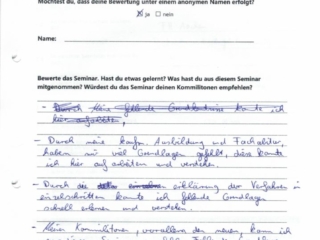 Möchtest du, dass deine Bewertung unter einem anonymen Namen erfolgt?
ja nein
Name:
Bewerte das Seminar. Hast du etwas gelernt? Was hast du aus diesem Seminar
mitgenommen? Würdest du das Seminar deinen Kommilitonen empfehlen?
- Durch meine fehlende Grundkenntnisse konnte ich
hier
- Durch meine kaufm. Ausbildung und Fachabitur,
haben mir viel Grundlagen gefehlt, diese konnte
ich hier auf arbeiten und verstehen.
- Durch die erklärung der Verfahren in
einzelschritten konnte ich fehlende Grundlagen
schnell erlernen und verstehen.
- Meine Kommilitonen, vorallem den neuen, kann ich